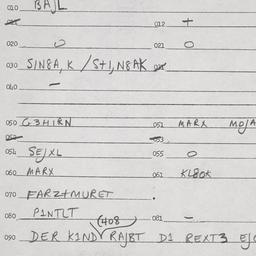 010 BAJL
011 012 +
020 O 021 O
030 S1N8A, K / S+1, N8AK 031
040 –
050 G3H1RN 051 MARX MOJA
052 053
054 SEJXL 055 O
060 MARX 061 KL80K
070 FARZ+MURET .
080 P1NTLT 081 –
(408
090 DER K1ND RAJBT D1 REXT3 EJO